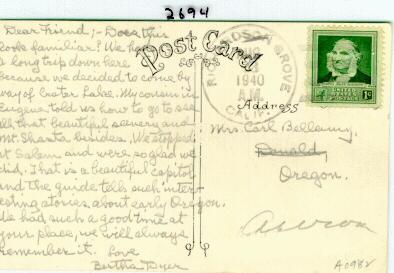 2694
Dear Friend;- Does this
look familiar? We had
a long trip down here
because we decided to come by
way of Crater Lake. My cousin in
Eugene told us how to go to see
all that beautiful scenery and
Mt. Shasta besides. We stopped
at Salem and were so glad we
did. That is a beautiful capitol
and the guide tells such inter-
esting stories about early Oregon.
We had such a good time at
your place, we will always
remember it. Love
Bertha Dyer
Post Card
RICHARDSON GROVE
AUG
1940
A.M.
CALIF.
UNITED STATES
POSTAGE
1¢
Address
Mrs. Carl Bellamy,
Donald,
Oregon.
A0982